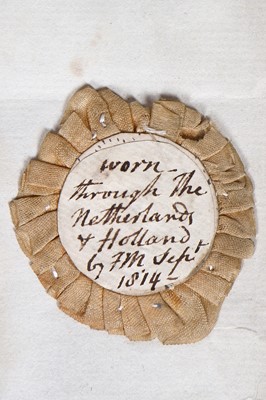 worn
through the
Netherlands
& Holland
by FM Sepᵗ
1814 –